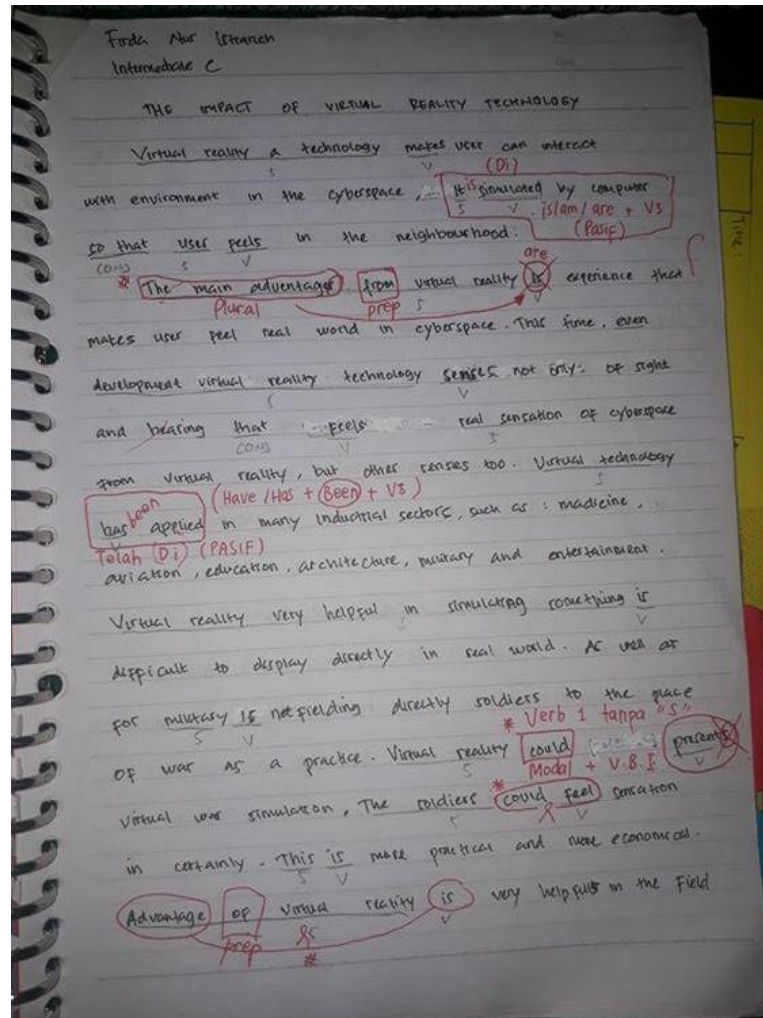 Firda Nur
Intermediate C
THE IMPACT OF VIRTUAL REALITY TECHNOLOGY
Virtual reality a technology makes user can interact
S V (Di)
with environment in the cyberspace, It is simulated by computer
S V is/am/are + V3
(Pasif)
so that user feels in the neighbourhood.
conj S V are
* The main advantages from virtual reality is experience that
Plural prep S V
makes user feel real world in cyberspace. This time, even
development virtual reality technology senses not only: of sight
S V
and hearing that feels real sensation of cyberspace
conj V S
from virtual reality, but other senses too. Virtual technology
S
been (Have/Has + Been + V3)
has applied in many industrial sectors, such as : madicine,
V
Telah (Di) (PASIF)
aviation, education, architecture, military and entertainment.
Virtual reality very helpful in simulating something is
V
difficult to display directly in real world. As well as
for military is not fielding directly soldiers to the place
S V
* Verb 1 tanpa "S"
of war as a practice. Virtual reality could presents
S Modal + V.B.I V
virtual war simulation, The soldiers * could feel sensation
S V
in certainly. This is more practical and more economical.
S V
Advantage of virtual reality is very helpfull in the Field
prep S V
*
Time: